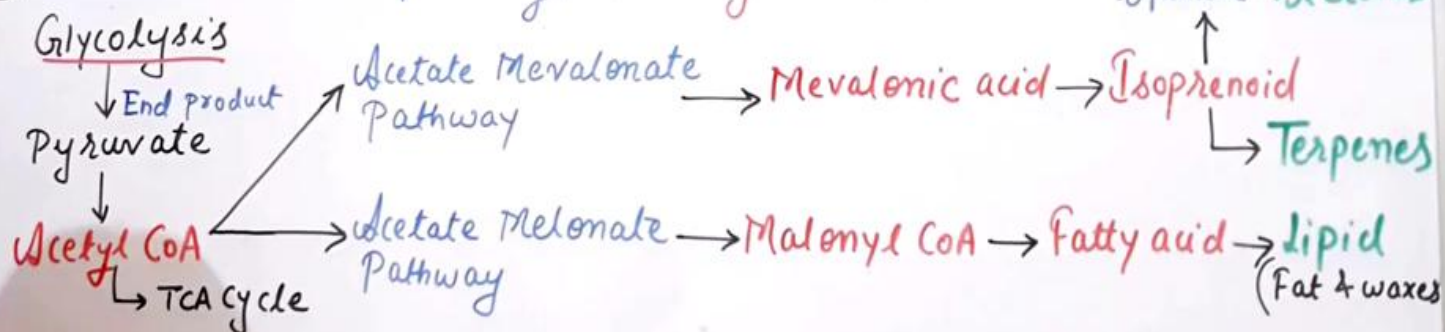 Glycolysis
End product
Pyruvate
Acetyl CoA
TCA Cycle
Acetate Mevalonate
Pathway
Mevalonic acid
Isoprenoid
Terpenes
Acetate Melonate
Pathway
Malonyl CoA
Fatty acid
Lipid
(Fat & waxes